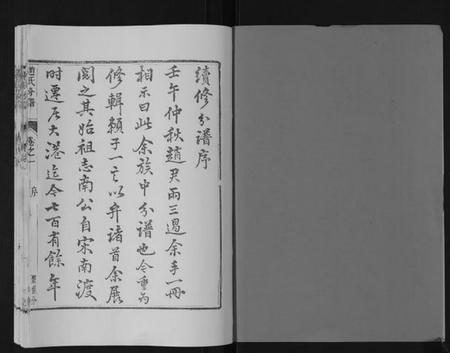 續修分譜序
壬午仲秋趙君雨三過余手一冊
相示曰此余族中分譜也今重為
修輯願子一言以弁諸首余展
閱之其始祖志南公自宋南渡
時遷居大港迄今七百有餘年
趙氏分譜
卷之一
序